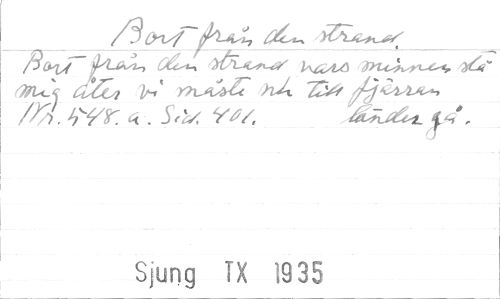 Bort från den strand.
Bort från den strand vars minnen stå
mig åter vi måste nu till fjärran
Nr. 548. a. Sid. 401. länder gå.
Sjung TX 1935